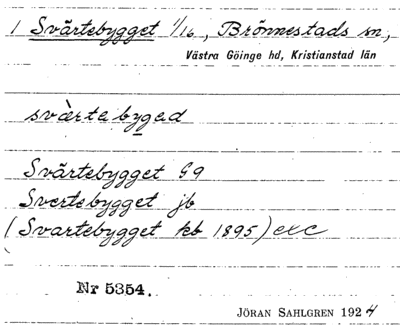 1 Svärtebygget 1/16, Brönnestads sn,
Västra Göinge hd, Kristianstad län
svä̀rtebygəd
Svärtebygget Gg
Svertebygget jb
(Svartebygget kb 1895) exc
Nr 5354.
JÖRAN SAHLGREN 1924